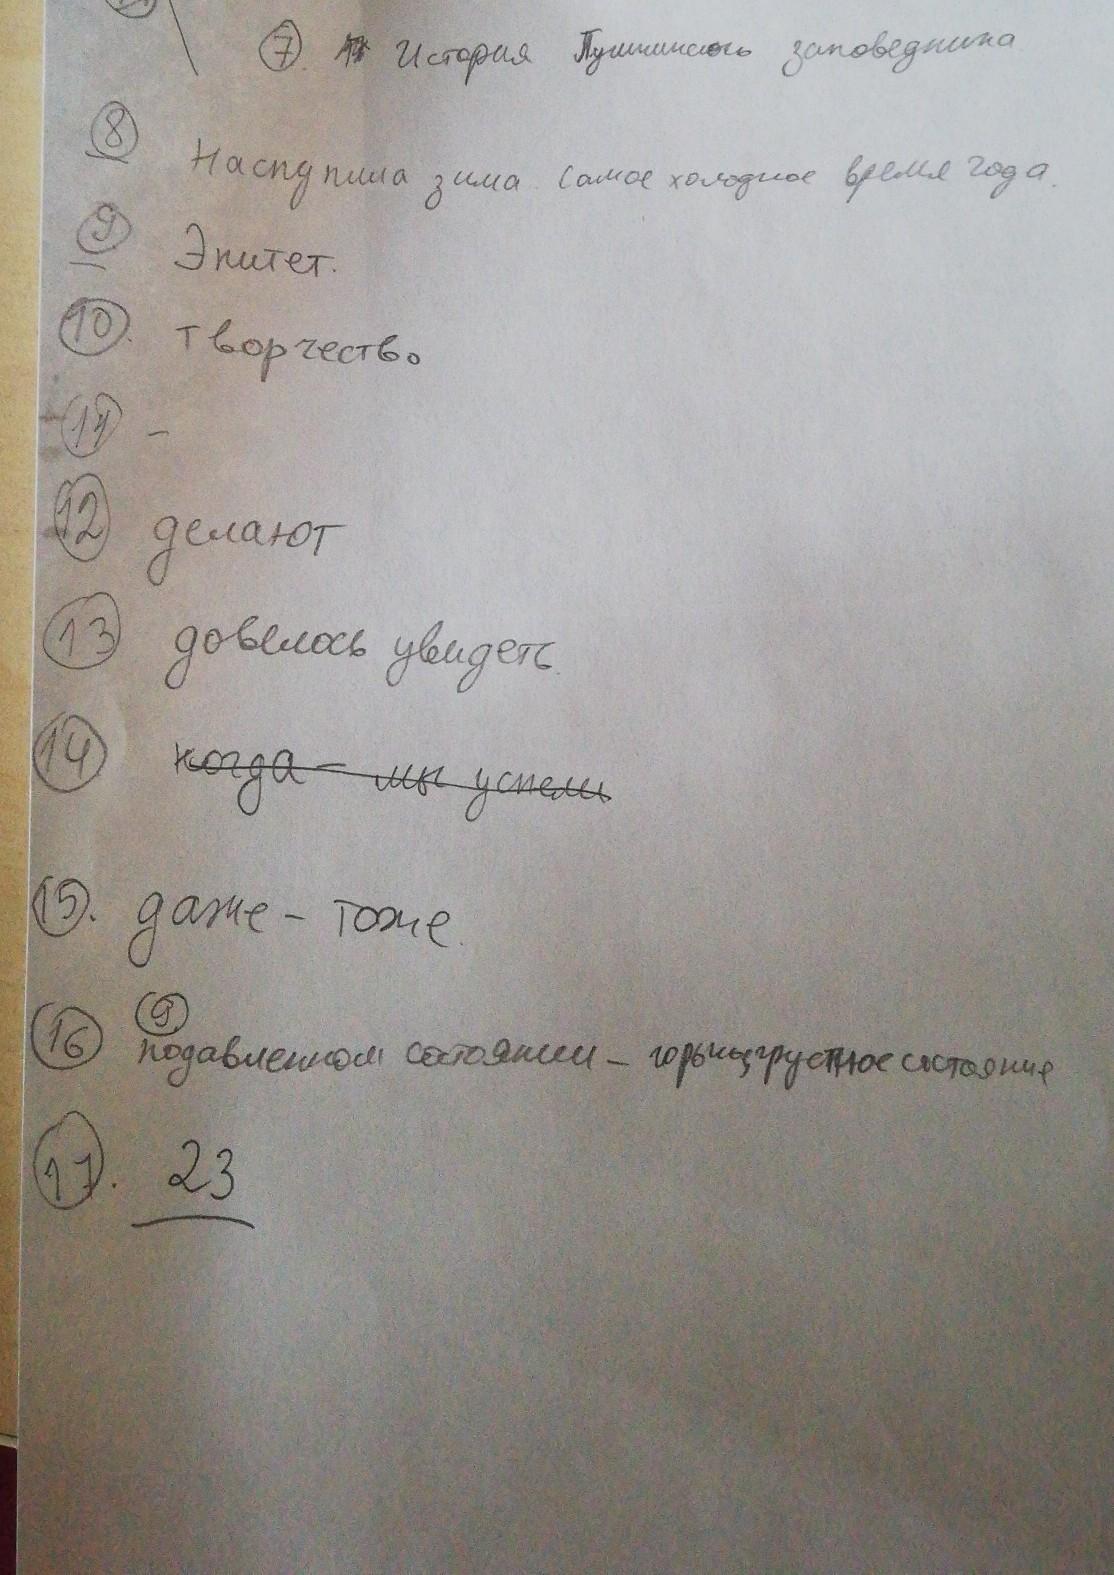 7. История Пушкинского заповедника
8 Наступила зима самое холодное время года.
9 Эпитет.
10. творчество
11 –
12 делают
13 довелось увидеть.
14 когда – мы успели
15. даже – тоже.
9
16 подавленном состоянии – грустное состояние
17. 23